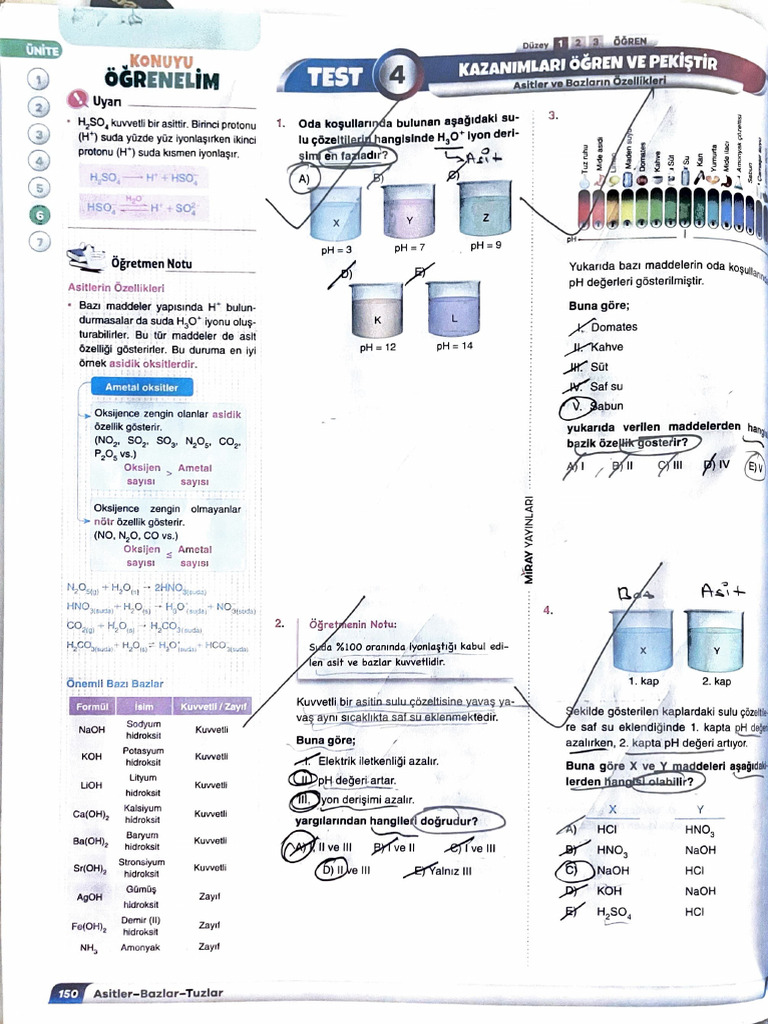 ÜNİTE
1
2
3
4
5
6
7
KONUYU
ÖĞRENELİM
Uyarı
• H₂SO₄ kuvvetli bir asittir. Birinci protonu
(H⁺) suda yüzde yüz iyonlaşırken ikinci
protonu (H⁺) suda kısmen iyonlaşır.
H₂SO₄ → H⁺ + HSO₄⁻
HSO₄⁻ ⇌ H⁺ + SO₄²⁻
H₂O
Öğretmen Notu
Asitlerin Özellikleri
• Bazı maddeler yapısında H⁺ bulun-
durmasalar da suda H₃O⁺ iyonu oluş-
turabilirler. Bu tür maddeler de asit
özelliği gösterirler. Bu duruma en iyi
örnek asidik oksitlerdir.
Ametal oksitler
Oksijence zengin olanlar asidik
özellik gösterir.
(NO₂, SO₂, SO₃, N₂O₅, CO₂,
P₂O₅ vs.)
Oksijen > Ametal
sayısı sayısı
Oksijence zengin olmayanlar
nötr özellik gösterir.
(NO, N₂O, CO vs.)
Oksijen ≤ Ametal
sayısı sayısı
N₂O₅(g) + H₂O(s) → 2HNO₃(suda)
HNO₃(suda) + H₂O(s) → H₃O⁺(suda) + NO₃⁻(suda)
CO₂(g) + H₂O(s) → H₂CO₃(suda)
H₂CO₃(suda) + H₂O(s) ⇌ H₃O⁺(suda) + HCO₃⁻(suda)
Önemli Bazı Bazlar
Formül İsim Kuvvetli / Zayıf
NaOH Sodyum hidroksit Kuvvetli
KOH Potasyum hidroksit Kuvvetli
LiOH Lityum hidroksit Kuvvetli
Ca(OH)₂ Kalsiyum hidroksit Kuvvetli
Ba(OH)₂ Baryum hidroksit Kuvvetli
Sr(OH)₂ Stronsiyum hidroksit Kuvvetli
AgOH Gümüş hidroksit Zayıf
Fe(OH)₂ Demir (II) hidroksit Zayıf
NH₃ Amonyak Zayıf
150 Asitler-Bazlar-Tuzlar
Düzey 1 2 3 ÖĞREN
TEST 4
KAZANIMLARI ÖĞREN VE PEKİŞTİR
Asitler ve Bazların Özellikleri
1. Oda koşullarında bulunan aşağıdaki su-
lu çözeltilerin hangisinde H₃O⁺ iyon deri-
şimi en fazladır?
Asit
A) B) C)
X Y Z
pH = 3 pH = 7 pH = 9
D) E)
K L
pH = 12 pH = 14
2. Öğretmenin Notu:
Suda %100 oranında iyonlaştığı kabul edi-
len asit ve bazlar kuvvetlidir.
Kuvvetli bir asitin sulu çözeltisine yavaş ya-
vaş aynı sıcaklıkta saf su eklenmektedir.
Buna göre;
I. Elektrik iletkenliği azalır.
II. pH değeri artar.
III. İyon derişimi azalır.
yargılarından hangileri doğrudur?
A) I, II ve III B) I ve II C) I ve III
D) II ve III E) Yalnız III
MİRAY YAYINLARI
3.
Tuz ruhu
Mide asidi
Limon
Maden suyu
Domates
Kahve
Süt
Su
Kan
Yumurta
Mide ilacı
Amonyak çözeltisi
Sabun
pH
Yukarıda bazı maddelerin oda koşullarında
pH değerleri gösterilmiştir.
Buna göre;
I. Domates
II. Kahve
III. Süt
IV. Saf su
V. Sabun
yukarıda verilen maddelerden
bazik özellik gösterir?
A) I B) II C) III D) IV E) V
4.
Baz Asit
X Y
1. kap 2. kap
Şekilde gösterilen kaplardaki sulu
re saf su eklendiğinde 1. kapta pH
azalırken, 2. kapta pH değeri artıyor.
Buna göre X ve Y maddeleri
lerden hangisi olabilir?
X Y
A) HCl HNO₃
B) HNO₃ NaOH
C) NaOH HCl
D) KOH NaOH
E) H₂SO₄ HCl